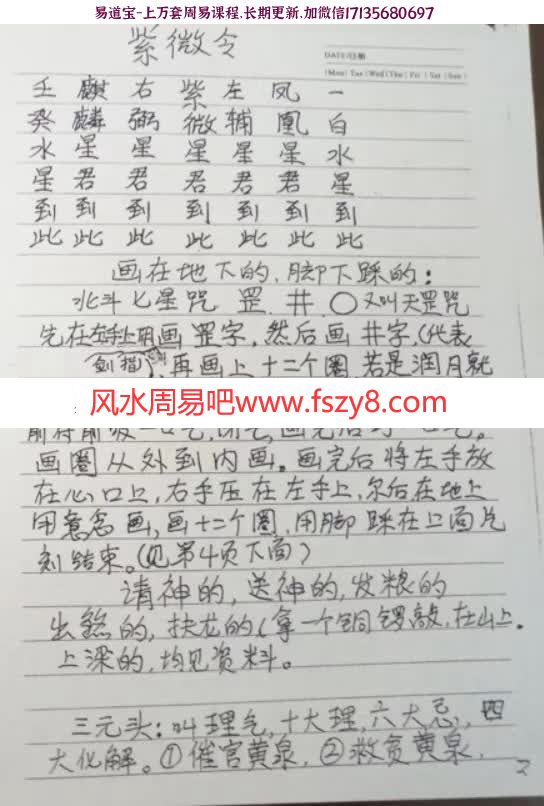 易道宝-上万套周易课程.长期更新.加微信17135680697
紫微令
DATE/日期
Mon Tue Wed Thu Fri Sat Sun
壬 麒 右 紫 左 凤 一
癸 麟 弼 微 辅 凰 白
水 星 星 星 星 星 水
星 君 君 君 君 君 星
到 到 到 到 到 到 到
此 此 此 此 此 此 此
画在地下的,脚下踩的:
北斗七星咒 罡.井.〇又叫天罡咒
先在左手上画 罡字,然后画 井字,(代表
剑指 再画上 十二个圈,若是润月就
风水周易吧www.fszy8.com
画圈从外到内画。画完后将左手放
在心口上,右手压在左手上,尔后在地上
用意念画,画十二个圈,用脚踩在上面片
刻结束。(见第4页下面)
请神的,送神的,发粮的
出煞的,扶龙的(拿一个铜锣敲,在山上.
上深的,均见资料。
三元头:叫理气,十大理,六大忌,四
大化解。①催官黄泉,②救贫黄泉,
2